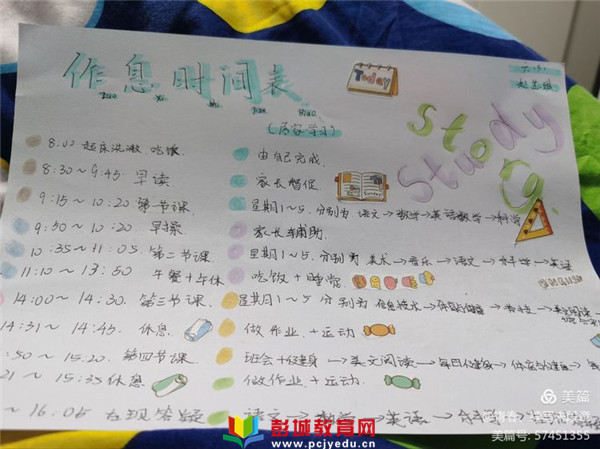 作息时间表
Today
(居家学习)
Study
story
8:00 起床洗漱 吃饭 由自己完成
8:30~9:45 早读 家长督促
9:15~10:20 第一节课 星期1~5,分别为 语文→数学→英语→数学→科学
9:50~10:20 早操 家长辅助
10:35~11:05 第二节课 星期1~5,分别为 美术→音乐→语文→
11:10~13:50 午餐+午休 吃饭+睡觉
14:00~14:30 第三节课 星期1~5 分别为 信息技术→
14:31~14:45 休息 做作业+运动
:50~15:20 第四节课 班会+健身→英文阅读→每日健身→
21~15:35 休息 做作业+运动
~16:05 在线答疑 语文→数学→英语→
彭城教育网
www.pcjyedu.cn
美篇
美篇号: 57451355